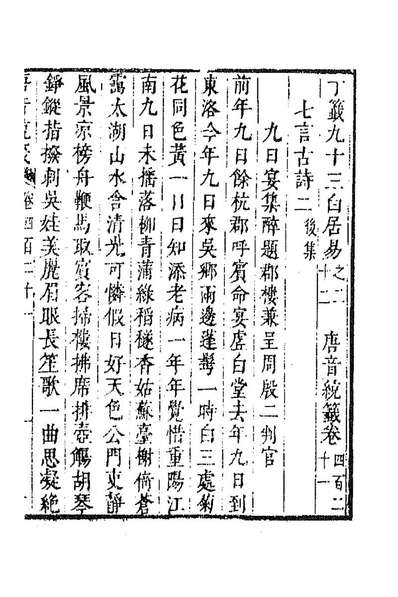 丁籤九十三白居易之十二二　唐音統籤卷四百二十一
七言古詩二後集
九日宴集醉題郡樓兼呈周殷二判官
前年九日餘杭郡呼賓命宴虛白堂去年九日到
東洛今年九日來吳鄉兩邊蓬鬢一時白三處菊
花同色黃一日日知添老病一年年覺惜重陽江
南九月未搖落柳青蒲綠稻穟香姑蘇臺榭倚蒼
靄太湖山水含清光可憐假日好天色公門吏靜
風景涼榜舟鞭馬取賓客掃樓拂席排壺觴胡琴
錚鏦指撥剌吳娃美麗眉眼長笙歌一曲思凝絕